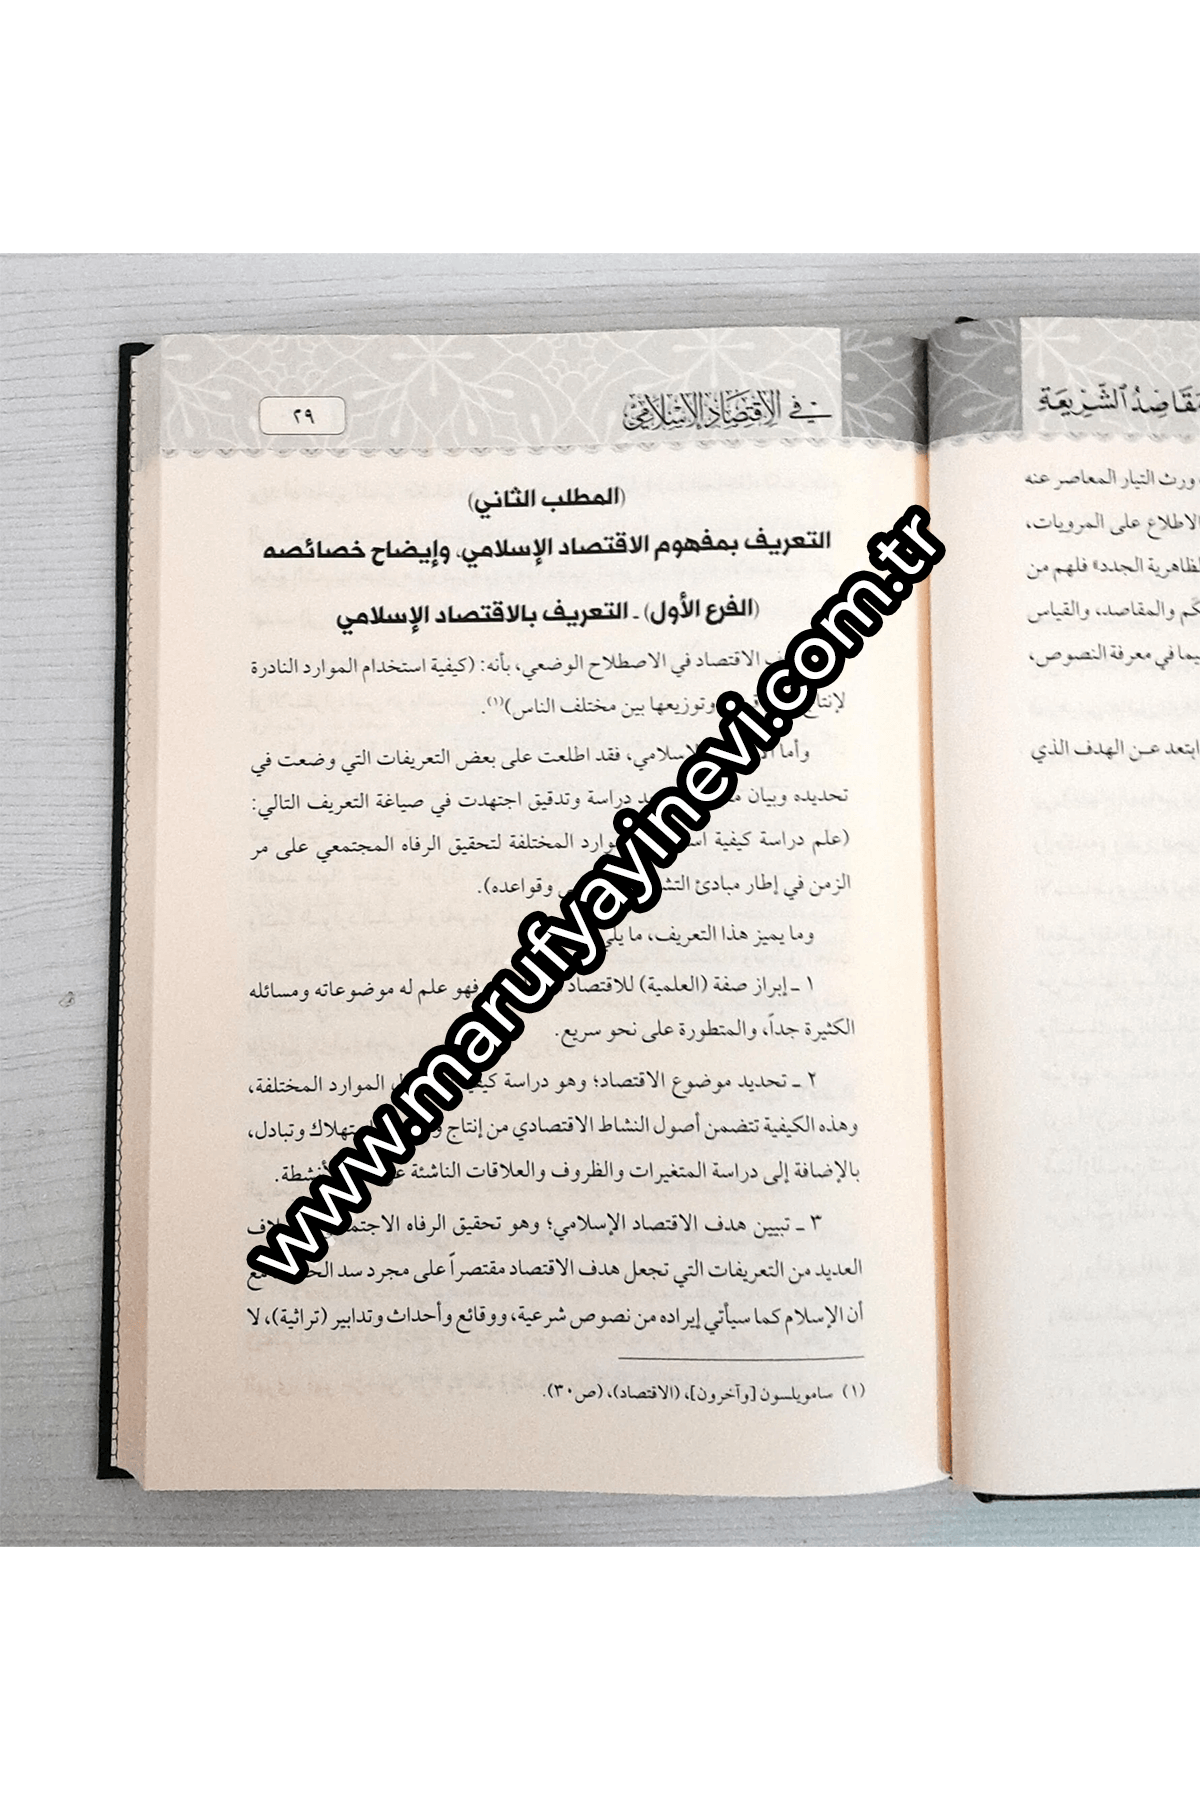 مقاصد الشريعة
ورث التيار المعاصر عنه
الاطلاع على المرويات،
لظاهرية الجدد» فلهم من
كَم والمقاصد، والقياس
يما في معرفة النصوص،
ابتعد عن الهدف الذي
في الاقتصاد الإسلامي
٢٩
(المطلب الثاني)
التعريف بمفهوم الاقتصاد الإسلامي، وإيضاح خصائصه
(الفرع الأول) ـ التعريف بالاقتصاد الإسلامي
الاقتصاد في الاصطلاح الوضعي، بأنه: (كيفية استخدام الموارد النادرة
لإنتاج وتوزيعها بين مختلف الناس)(١).
وأما الإسلامي، فقد اطلعت على بعض التعريفات التي وضعت في
تحديده وبيان دراسة وتدقيق اجتهدت في صياغة التعريف التالي:
(علم دراسة كيفية الموارد المختلفة لتحقيق الرفاه المجتمعي على مر
الزمن في إطار مبادئ وقواعده).
وما يميز هذا التعريف، ما يلي
١ ـ إبراز صفة (العلمية) للاقتصاد فهو علم له موضوعاته ومسائله
الكثيرة جداً، والمتطورة على نحو سريع.
٢ ـ تحديد موضوع الاقتصاد؛ وهو دراسة الموارد المختلفة،
وهذه الكيفية تتضمن أصول النشاط الاقتصادي من إنتاج وتبادل،
بالإضافة إلى دراسة المتغيرات والظروف والعلاقات الناشئة الأنشطة.
٣ ـ تبيين هدف الاقتصاد الإسلامي؛ وهو تحقيق الرفاه
العديد من التعريفات التي تجعل هدف الاقتصاد مقتصراً على مجرد سد مع
أن الإسلام كما سيأتي إيراده من نصوص شرعية، ووقائع وأحداث وتدابير (تراثية)، لا
(١) سامويلسون [وآخرون]، (الاقتصاد)، (ص٣٠).
www.marufyayinevi.com.tr